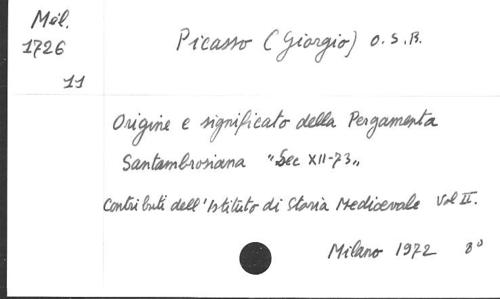 Mél.
1726
11
Picasso (Giorgio) O.S.B.
Origine e significato della Pergamenta
Santambrosiana "Sec XII-73"
Contributi dell'Istituto di Storia Medioevale Vol II.
Milano 1972 8°